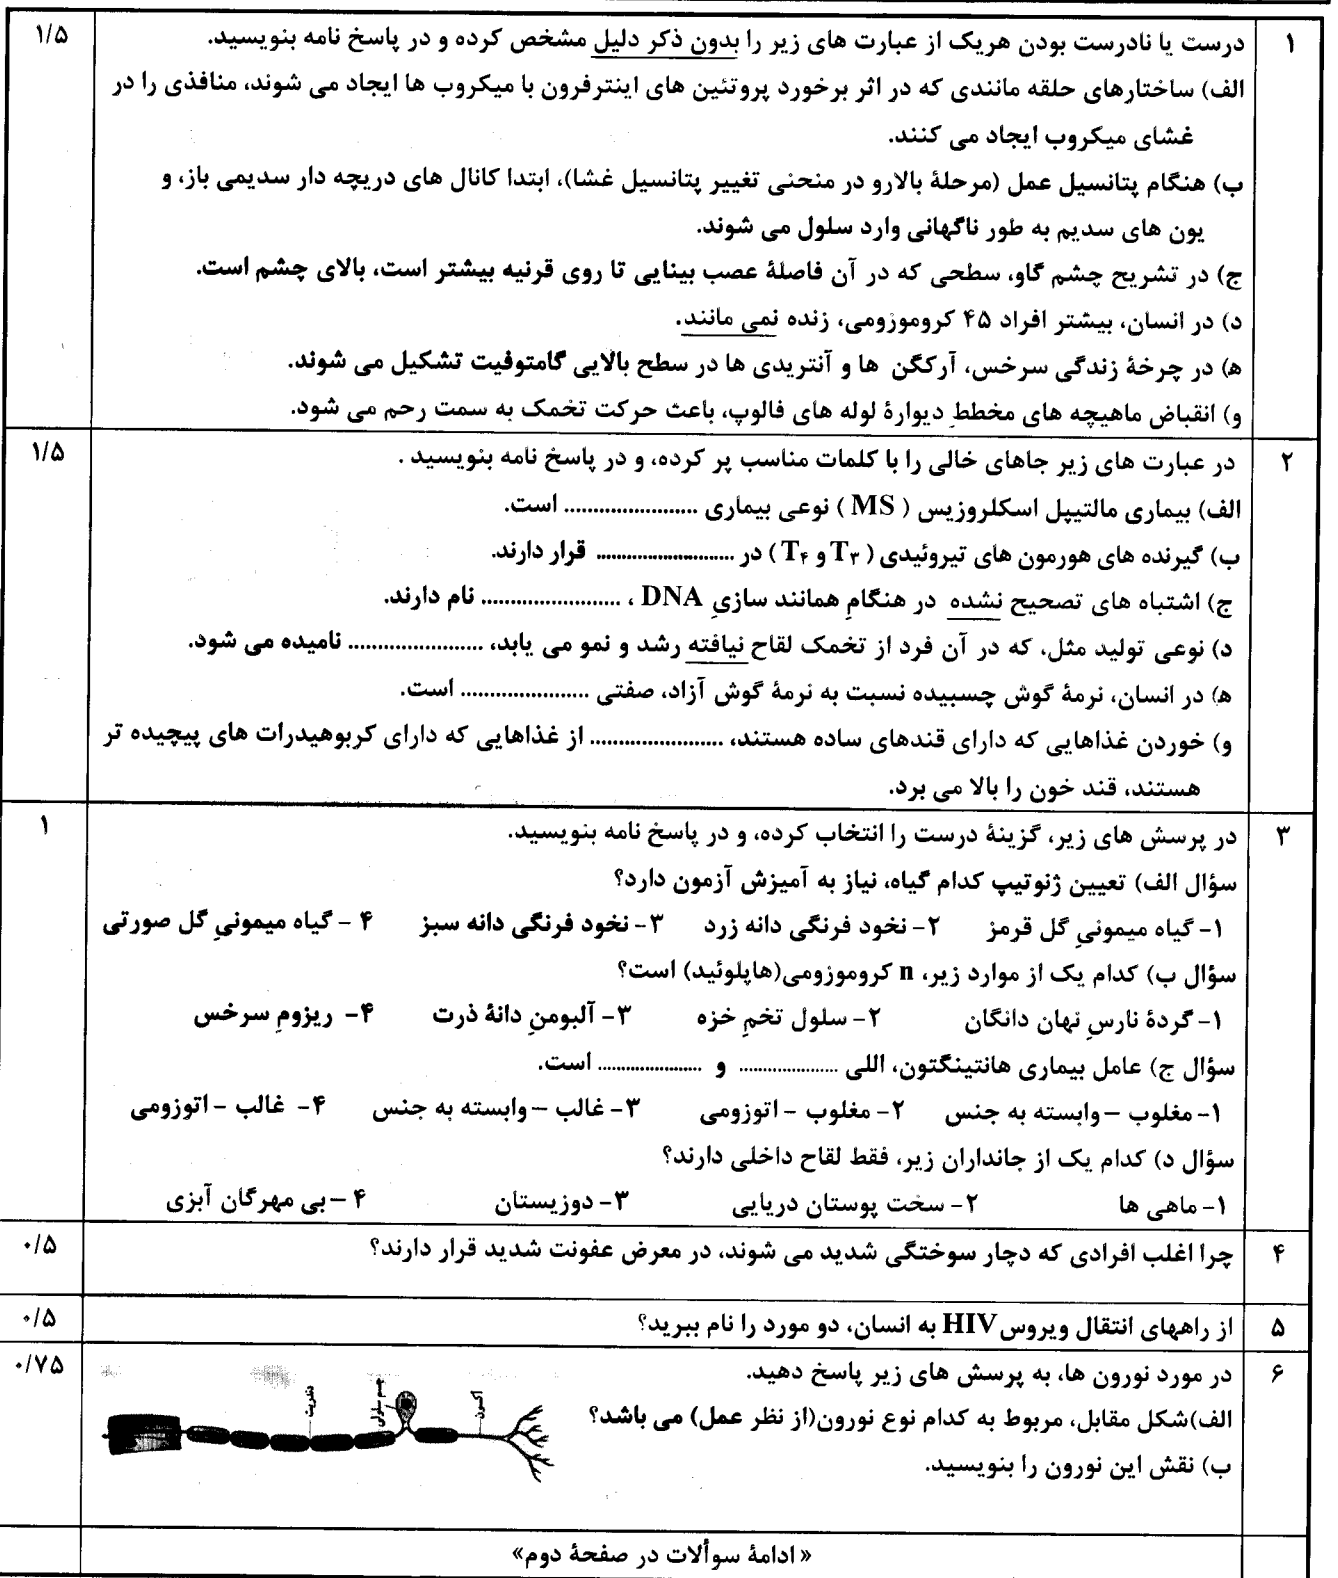 ۱ درست یا نادرست بودن هریک از عبارت های زیر را بدون ذکر دلیل مشخص کرده و در پاسخ نامه بنویسید. ۱/۵
الف) ساختارهای حلقه مانندی که در اثر برخورد پروتئین های اینترفرون با میکروب ها ایجاد می شوند، منافذی را در
غشای میکروب ایجاد می کنند.
ب) هنگام پتانسیل عمل (مرحلۀ بالارو در منحنی تغییر پتانسیل غشا)، ابتدا کانال های دریچه دار سدیمی باز، و
یون های سدیم به طور ناگهانی وارد سلول می شوند.
ج) در تشریح چشم گاو، سطحی که در آن فاصلۀ عصب بینایی تا روی قرنیه بیشتر است، بالای چشم است.
د) در انسان، بیشتر افراد ۴۵ کروموزومی، زنده نمی مانند.
ه) در چرخۀ زندگی سرخس، آرکگن ها و آنتریدی ها در سطح بالایی گامتوفیت تشکیل می شوند.
و) انقباض ماهیچه های مخططِ دیوارۀ لوله های فالوپ، باعث حرکت تخمک به سمت رحم می شود.
۲ در عبارت های زیر جاهای خالی را با کلمات مناسب پر کرده، و در پاسخ نامه بنویسید . ۱/۵
الف) بیماری مالتیپل اسکلروزیس ( MS ) نوعی بیماری ....................... است.
ب) گیرنده های هورمون های تیروئیدی ( T۳ و T۴ ) در ....................... قرار دارند.
ج) اشتباه های تصحیح نشده در هنگامِ همانند سازیِ DNA ، ....................... نام دارند.
د) نوعی تولید مثل، که در آن فرد از تخمک لقاح نیافته رشد و نمو می یابد، ....................... نامیده می شود.
ه) در انسان، نرمۀ گوش چسبیده نسبت به نرمۀ گوش آزاد، صفتی ....................... است.
و) خوردن غذاهایی که دارای قندهای ساده هستند، ....................... از غذاهایی که دارای کربوهیدرات های پیچیده تر
هستند، قند خون را بالا می برد.
۳ در پرسش های زیر، گزینۀ درست را انتخاب کرده، و در پاسخ نامه بنویسید. ۱
سؤال الف) تعیین ژنوتیپ کدام گیاه، نیاز به آمیزش آزمون دارد؟
۱- گیاه میمونیِ گل قرمز ۲- نخود فرنگی دانه زرد ۳- نخود فرنگی دانه سبز ۴ - گیاه میمونیِ گل صورتی
سؤال ب) کدام یک از موارد زیر، n کروموزومی(هاپلوئید) است؟
۱- گردۀ نارسِ نهان دانگان ۲- سلول تخمِ خزه ۳- آلبومنِ دانۀ ذرت ۴- ریزومِ سرخس
سؤال ج) عامل بیماری هانتینگتون، اللی .................... و .................... است.
۱- مغلوب – وابسته به جنس ۲- مغلوب - اتوزومی ۳- غالب – وابسته به جنس ۴- غالب - اتوزومی
سؤال د) کدام یک از جانداران زیر، فقط لقاح داخلی دارند؟
۱- ماهی ها ۲- سخت پوستان دریایی ۳- دوزیستان ۴ – بی مهرگان آبزی
۴ چرا اغلب افرادی که دچار سوختگی شدید می شوند، در معرض عفونت شدید قرار دارند؟ ۰/۵
۵ از راههای انتقال ویروس HIV به انسان، دو مورد را نام ببرید؟ ۰/۵
۶ در مورد نورون ها، به پرسش های زیر پاسخ دهید. ۰/۷۵
الف)شکل مقابل، مربوط به کدام نوع نورون(از نظر عمل) می باشد؟
ب) نقش این نورون را بنویسید.
دندریت
جسم سلولی
آکسون
« ادامۀ سوألات در صفحۀ دوم»